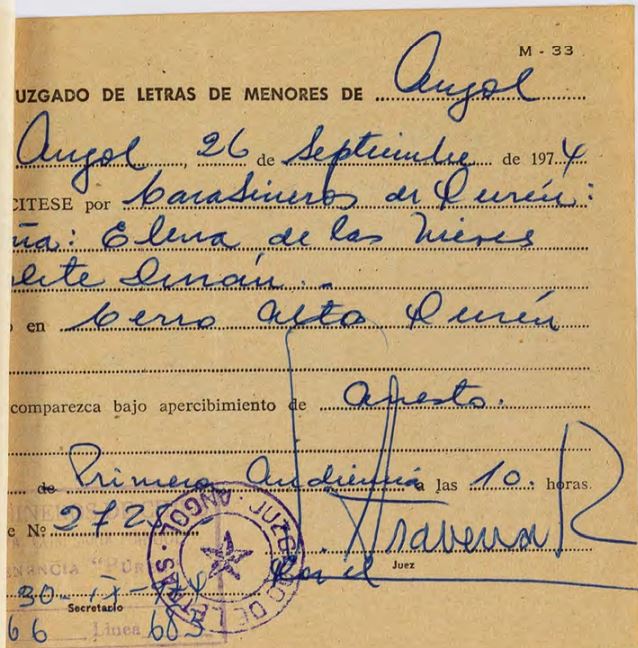 M - 33
UZGADO DE LETRAS DE MENORES DE Angol
Angol, 26 de Septiembre de 1974
CITESE por Carabineros de Purén:
ña: Elena de las Nieves
en Cerro Alto Purén
comparezca bajo apercibimiento de Arresto.
de Primera Audiencia a las 10. horas
e Nº 2725
JUZG DE LETRAS · ANGOL
Juez
Secretario
30-IX-
66 Linea 683